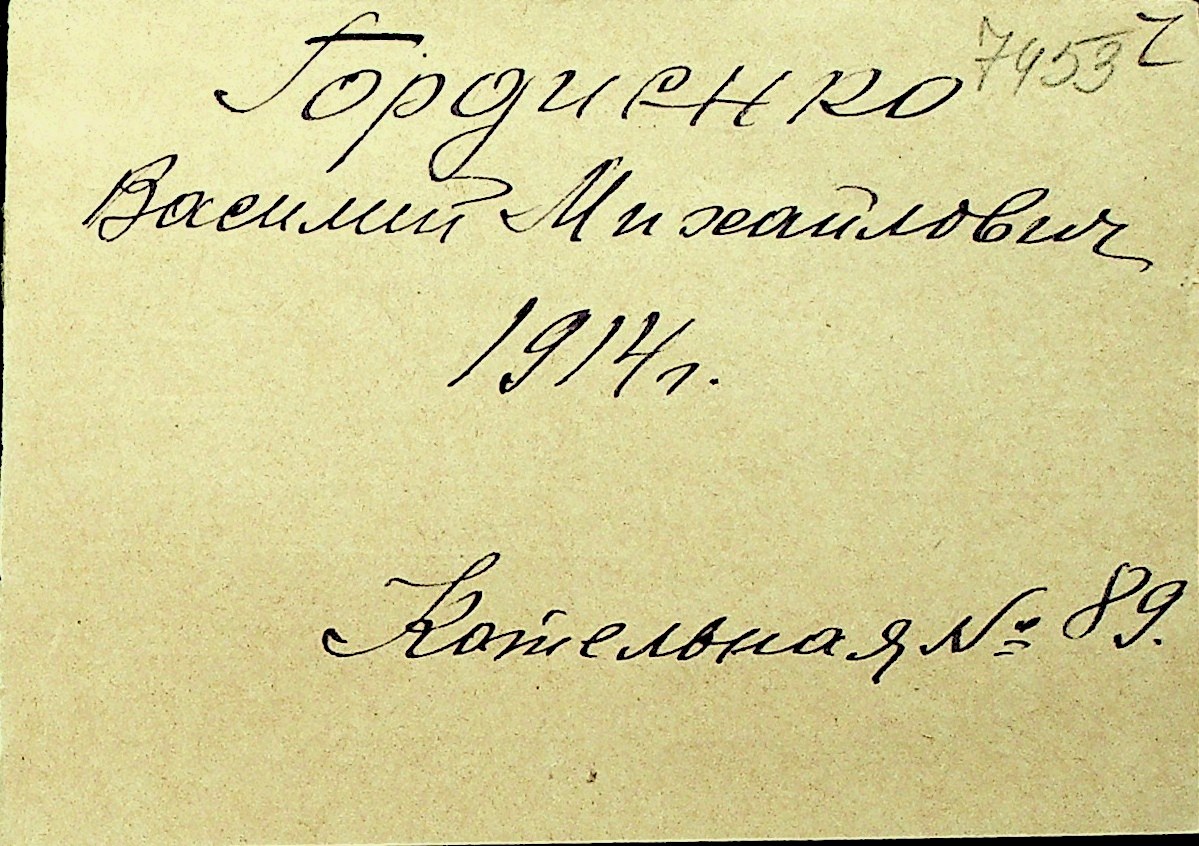 Гордиенко 7453
Василий Михайлович
1914 г.
Котельная № 89.